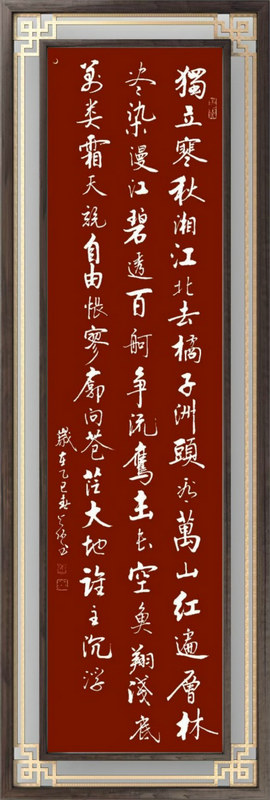 獨立寒秋湘江北去橘子洲頭看萬山紅遍層林
尽染漫江碧透百舸争流鷹击长空魚翔淺底
萬类霜天競自由悵寥廓问苍茫大地谁主沉浮
歲在乙巳春